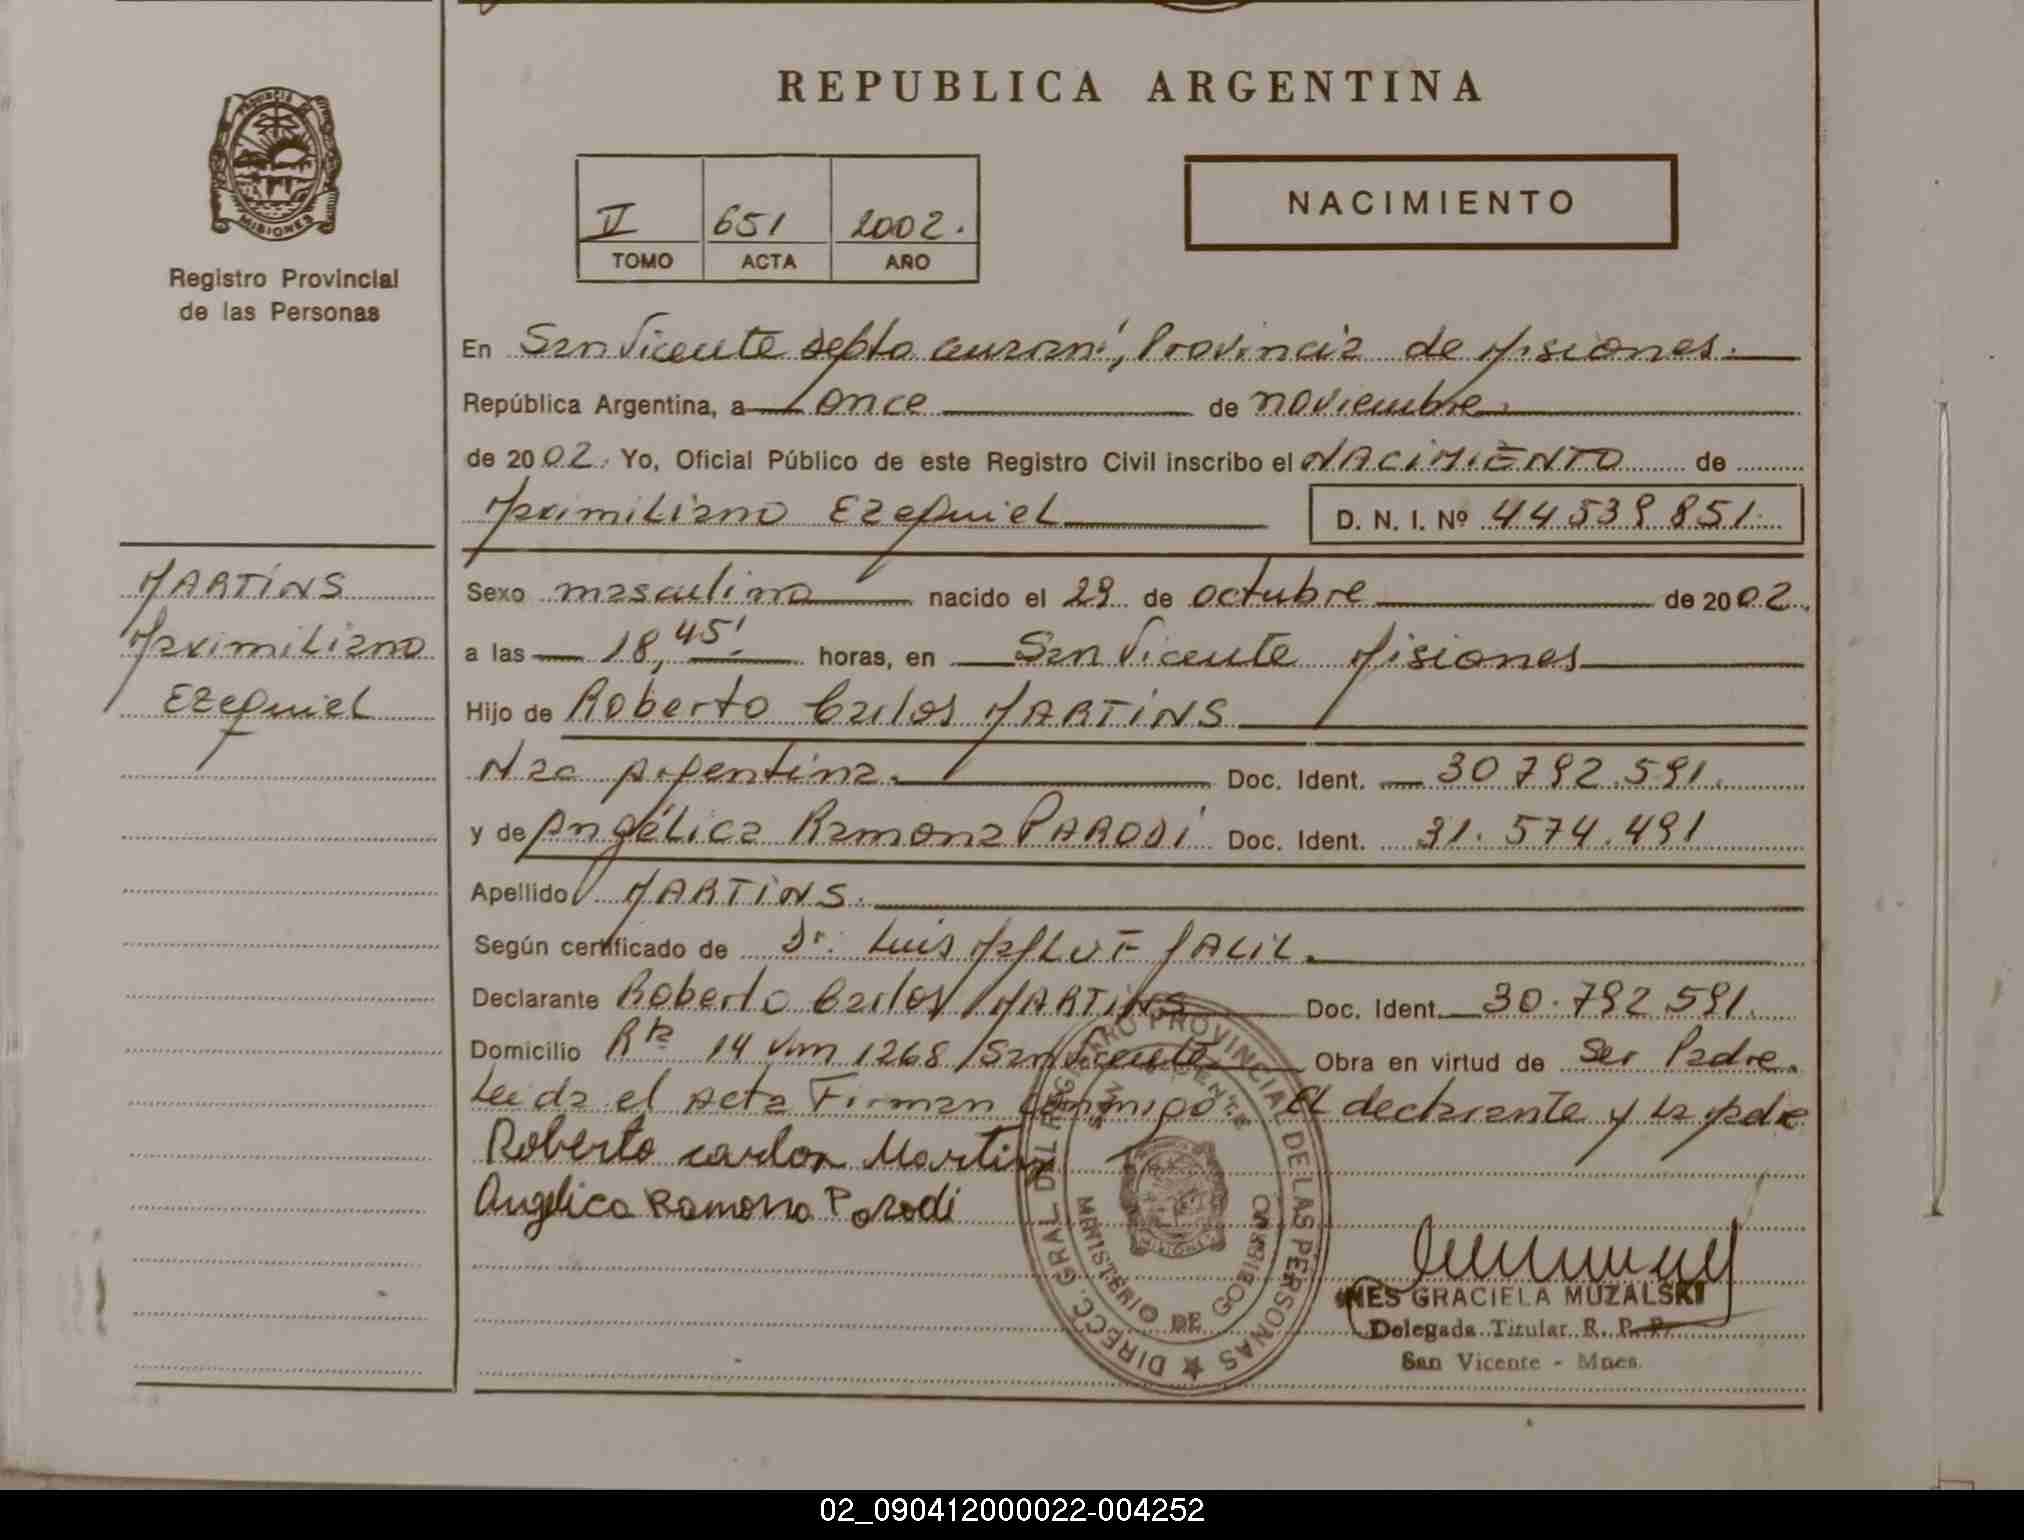 REPUBLICA ARGENTINA
PROVINCIA DE MISIONES
Registro Provincial
de las Personas
V 651 2002.
TOMO ACTA AÑO
NACIMIENTO
En San Vicente depto Guaraní, Provincia de Misiones.
República Argentina, a once de noviembre
de 2002. Yo, Oficial Público de este Registro Civil inscribo el NACIMIENTO de
Maximiliano Ezequiel D. N. I. Nº 44 539 851
MARTÍNS
Maximiliano
Ezequiel
Sexo masculino nacido el 29 de octubre de 2002.
a las 18,45' horas, en San Vicente Misiones
Hijo de Roberto Carlos MARTÍNS
Nac Argentina. Doc. Ident. 30 792.591.
y de Angélica Ramona PARODI Doc. Ident. 31.574.491
Apellido MARTÍNS.
Según certificado de Dr. Luis JALIL.
Declarante Roberto Carlos MARTÍNS Doc. Ident. 30.792 591.
Domicilio Rta 14 Km 1268 San Vicente Obra en virtud de Ser Padre.
Leida el Acta Firman conmigo El declarante y la madre
Roberto carlos Martins
Angelica Ramona Parodi
DIRECC. GRAL. DEL REGISTRO PROVINCIAL DE LAS PERSONAS
SAN VICENTE
MINISTERIO DE GOBIERNO
INES GRACIELA MUZALSKI
Delegada Titular R. P. P.
San Vicente - Mnes.
02_090412000022-004252